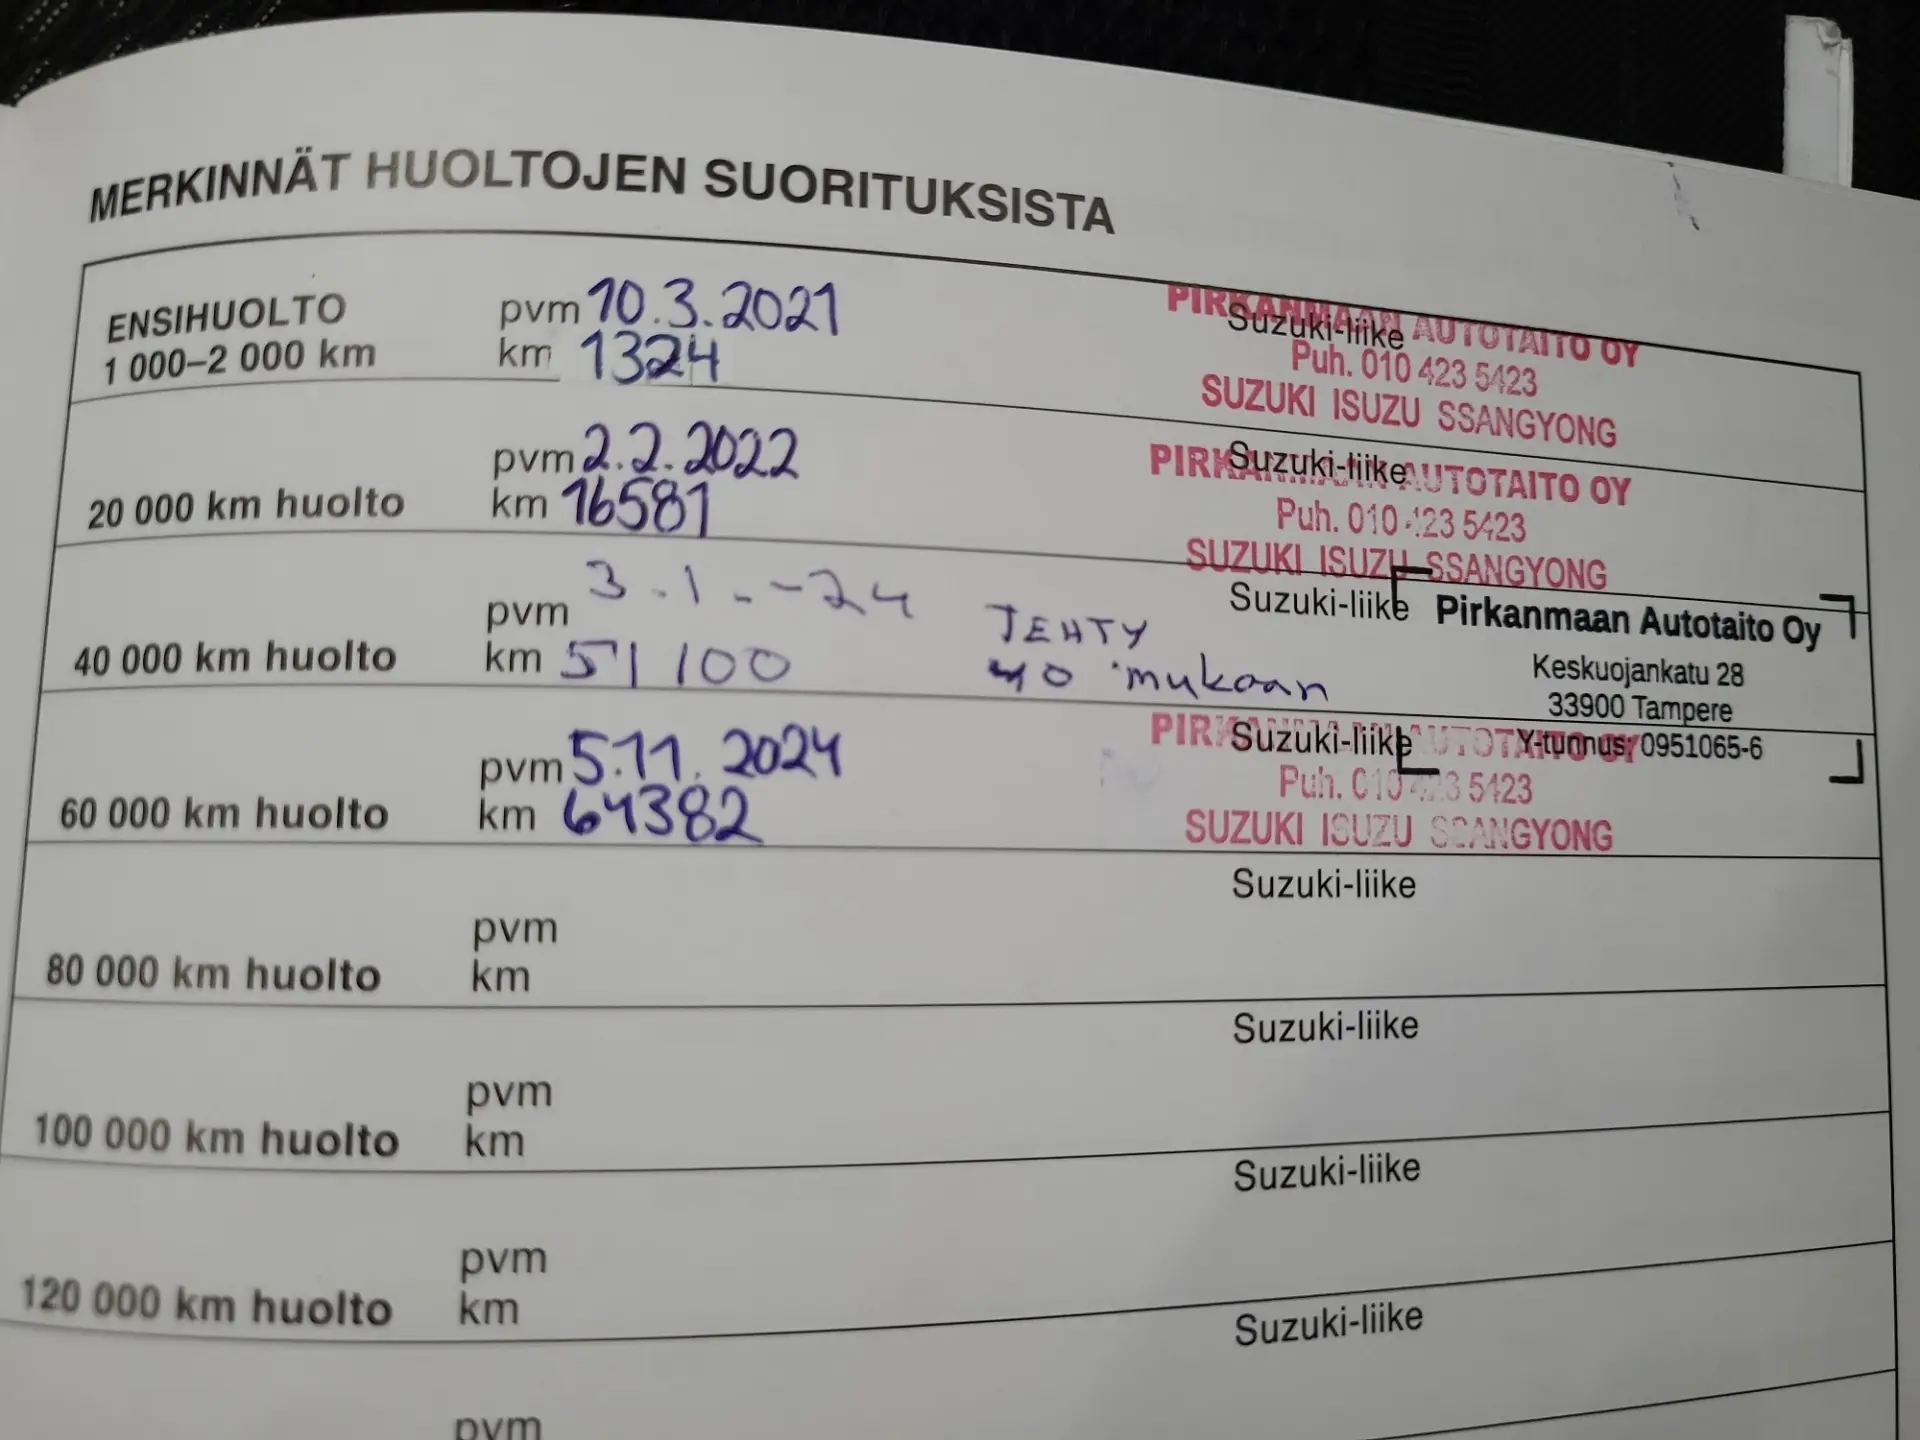 MERKINNÄT HUOLTOJEN SUORITUKSISTA
ENSIHUOLTO
1 000–2 000 km
pvm 10.3.2021
km 1324
Suzuki-liike
PIRKANMAAN AUTOTAITO OY
Puh. 010 423 5423
SUZUKI ISUZU SSANGYONG
20 000 km huolto
pvm 2.2.2022
km 16581
Suzuki-liike
PIRKANMAAN AUTOTAITO OY
Puh. 010 423 5423
SUZUKI ISUZU SSANGYONG
40 000 km huolto
pvm 3.1.-24
km 51100
TEHTY
40 mukaan
Suzuki-liike
Pirkanmaan Autotaito Oy
Keskuojankatu 28
33900 Tampere
Y-tunnus: 0951065-6
60 000 km huolto
pvm 5.11.2024
km 64382
Suzuki-liike
PIRKANMAAN AUTOTAITO OY
Puh. 010 423 5423
SUZUKI ISUZU SSANGYONG
80 000 km huolto
pvm
km
Suzuki-liike
100 000 km huolto
pvm
km
Suzuki-liike
120 000 km huolto
pvm
km
Suzuki-liike
pvm
Suzuki-liike